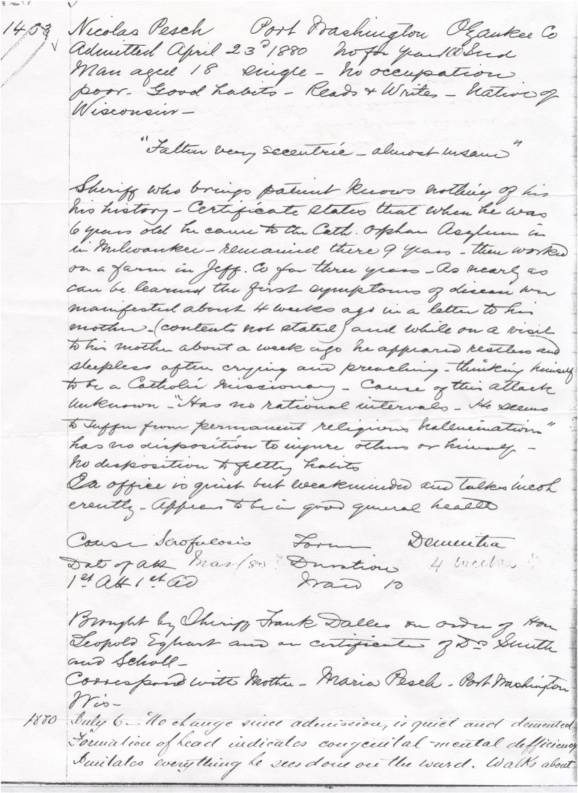 1453 Nicolas Pesch Port Washington Ozaukee Co
Admitted April 23d 1880
Man aged 18 single - No occupation
poor - Good habits - Reads & Writes - Native of
Wisconsin -
"Father very eccentric - almost insane"
Sheriff who brings patient knows nothing of his
his history - Certificate states that when he was
6 years old he came to the Cath. Orphan Asylum in
in Milwaukee - remained there 9 years - then worked
on a farm in Jeff. Co for three years - As nearly as
can be learned the first symptoms of disease were
manifested about 4 weeks ago in a letter to his
mother - (contents not stated) and while on a visit
to his mother about a week ago he appeared restless and
sleepless often crying and preaching - thinking himself
to be a Catholic Missionary - Cause of this attack
unknown - "Has no rational intervals - He seems
to suffer from permanent religious hallucination"
has no disposition to injure others or himself -
No disposition to filthy habits
In office is quiet but weakminded and talks incoh
erently - Appears to be in good general health
Cause Scrofulosis Form Dementia
Date of Att Mar/80 Duration 4 weeks
1st Att 1st Ad Ward 10
Brought by Sheriff Frank Dalles on order of Hon
Leopold Eghart and on certificate of Drs Smith
and Scholl -
Correspond with Mother - Maria Pesch - Port Washington
Wis -
1880 July 6 - No change since admission, is quiet and demented
Formation of head indicates congenital mental defficiency
Imitates everything he sees done on the ward. Walks about